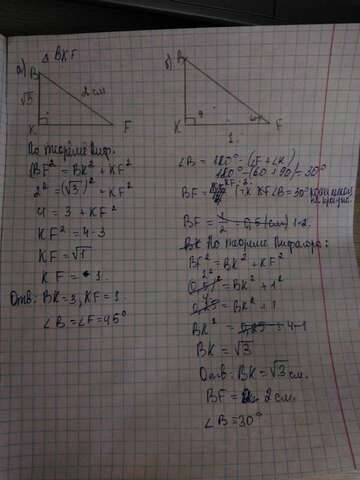 Δ BKF
а)
B
√3
2 см
K
F
По теореме Пиф.
BF² = BK² + KF²
2² = (√3)² + KF²
4 = 3 + KF²
KF² = 4-3
KF = √1
KF = 1.
Отв: BK = 3, KF = 1.
∠B = ∠F = 45°
б)
B
K
F
1
∠B = 180° - (∠F + ∠K)
180° - (60 + 90) = 30°
BF = KF · 2 т.к. ∠B = 30°
BF = 1·2
По теореме Пифагора:
BF² = BK² + KF²
2² = BK² + 1²
4 = BK² + 1
BK² = 4-1
BK = √3
Отв: BK = √3 см.
BF = 2 см.
∠B = 30°